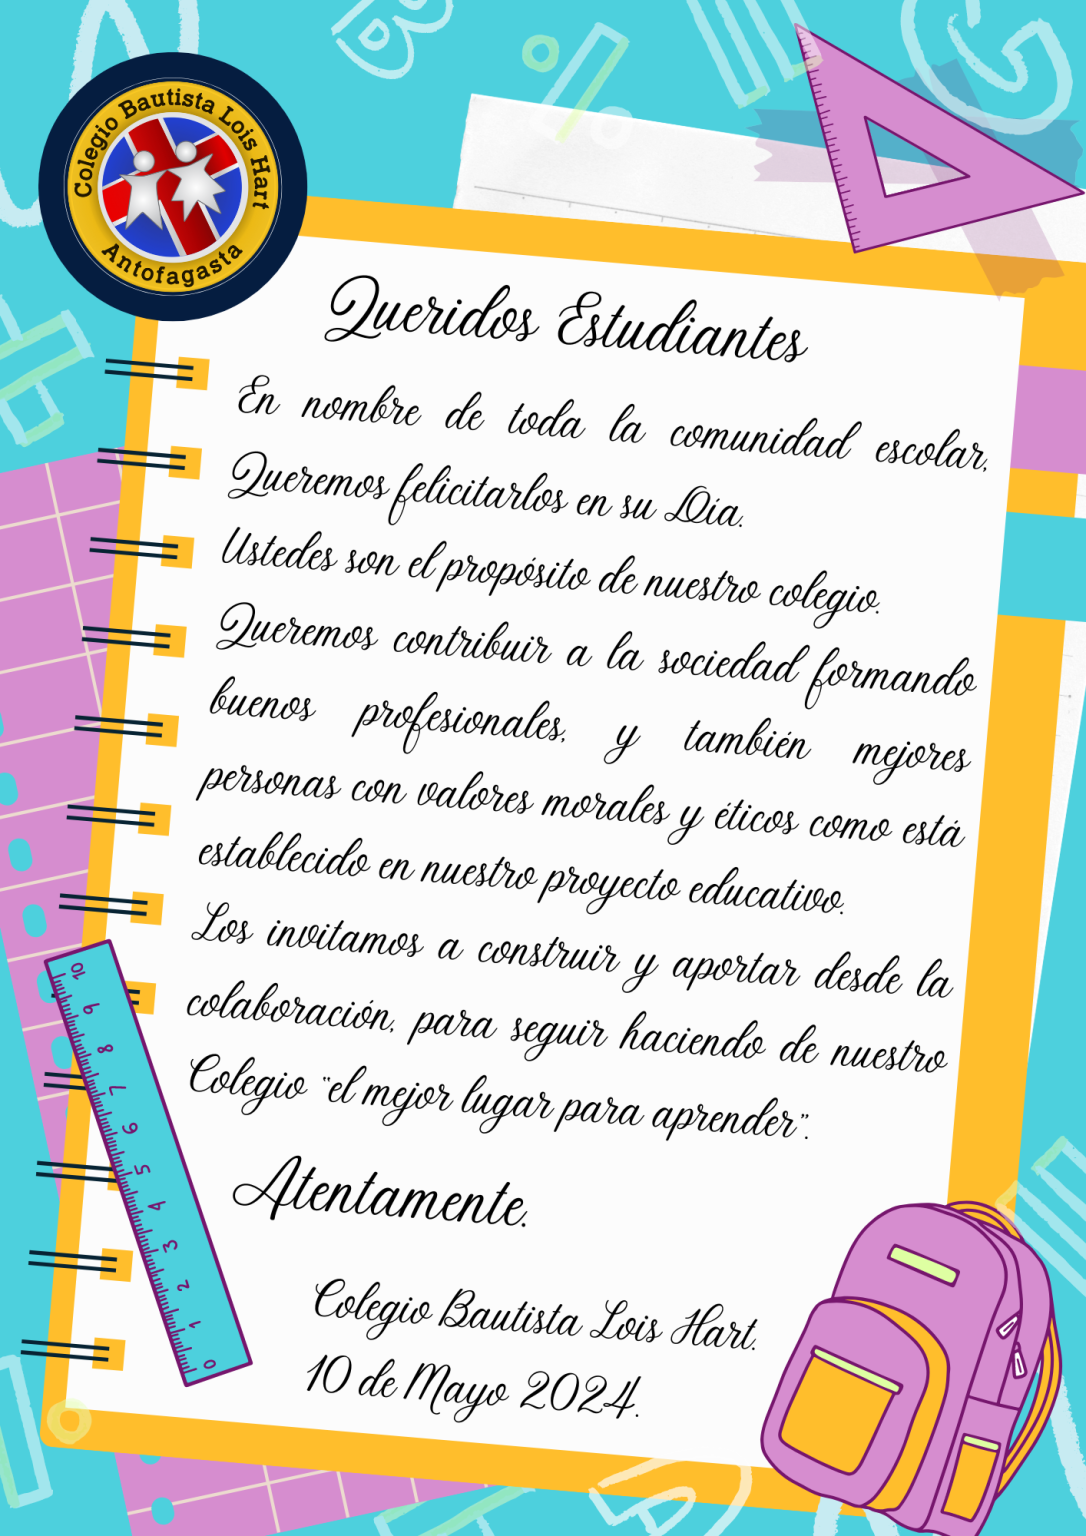 Colegio Bautista Lois Hart
Antofagasta
Queridos Estudiantes
En nombre de toda la comunidad escolar,
Queremos felicitarlos en su Día.
Ustedes son el propósito de nuestro colegio.
Queremos contribuir a la sociedad formando
buenos profesionales, y también mejores
personas con valores morales y éticos como está
establecido en nuestro proyecto educativo.
Los invitamos a construir y aportar desde la
colaboración, para seguir haciendo de nuestro
Colegio "el mejor lugar para aprender".
Atentamente.
Colegio Bautista Lois Hart.
10 de Mayo 2024.
10
9
8
7
6
5
4
3
2
1
0